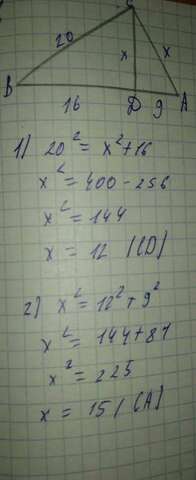 C
20 x x
B 16 D 9 A
1) 20² = x² + 16
x² = 400 - 256
x² = 144
x = 12 (CD)
2) x² = 12² + 9²
x² = 144 + 81
x² = 225
x = 15 (CA)